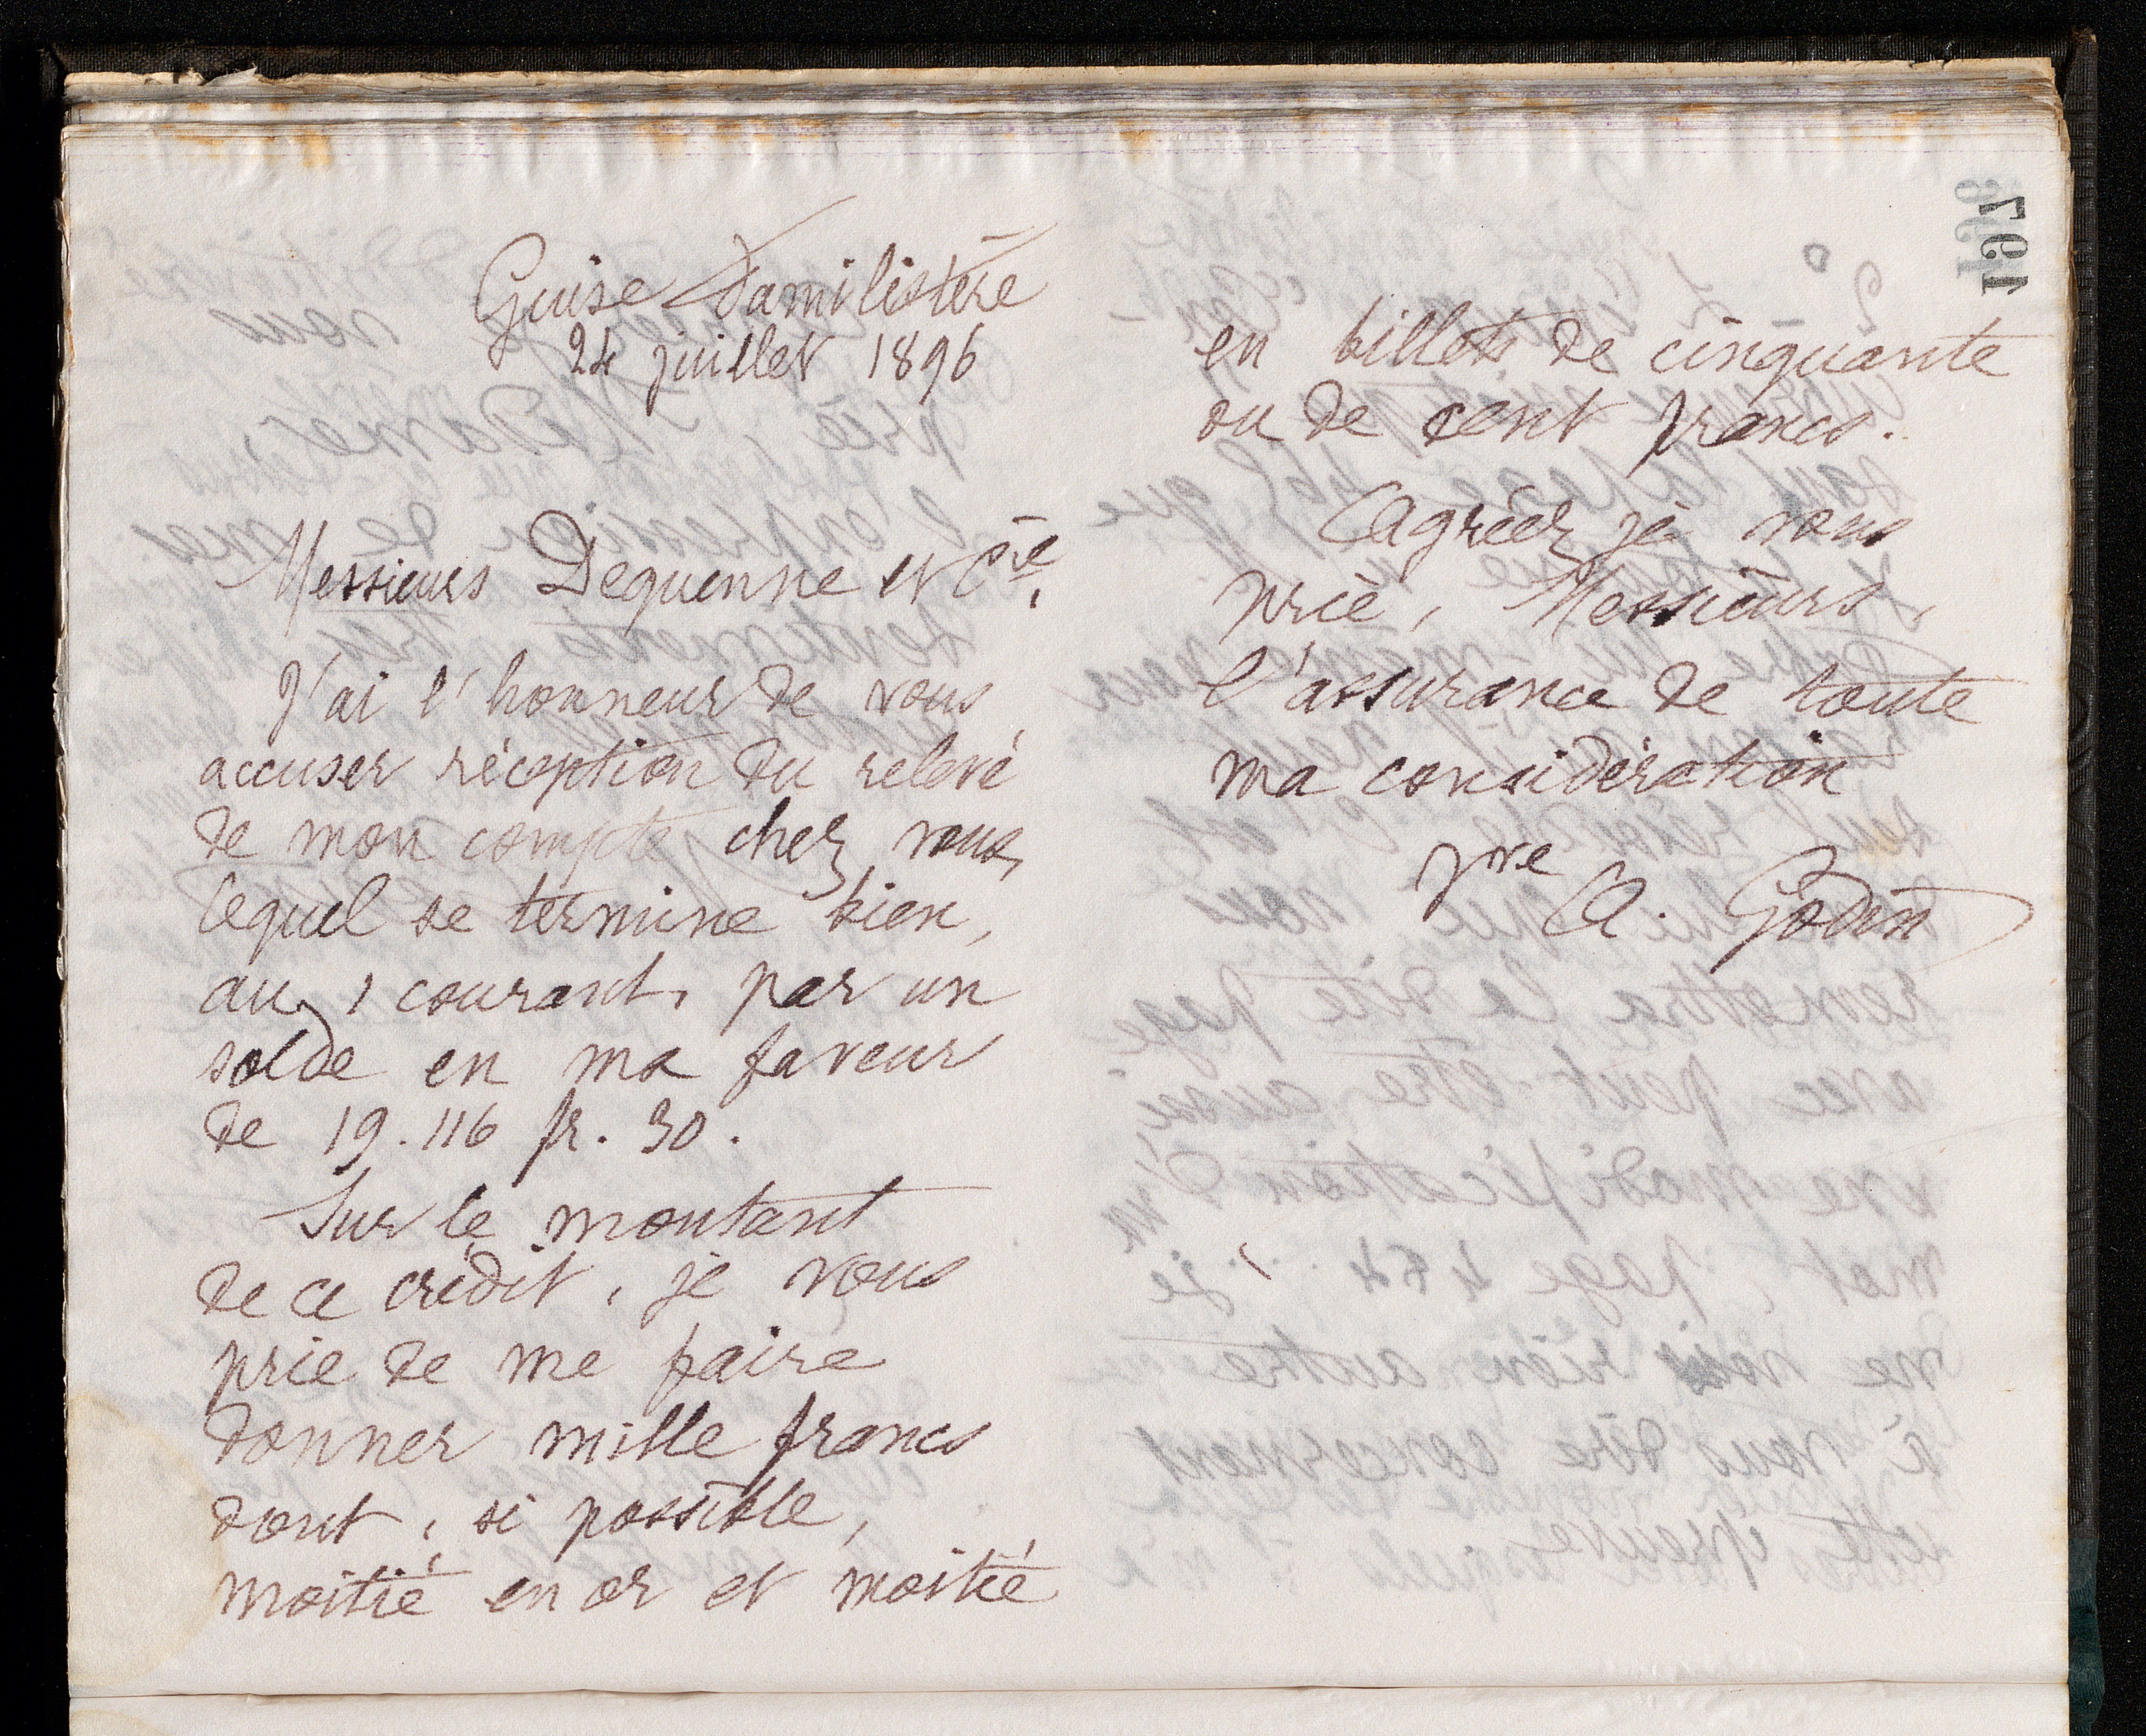 Guise Familistère
24 juillet 1896
Messieurs Dequenne et Cie,
J'ai l'honneur de vous
accuser réception du relevé
de mon compte chez vous,
lequel se termine bien,
au 1 courant, par un
solde en ma faveur
de 19.116 fr. 30.
Sur le montant
de ce crédit, je vous
prie de me faire
donner mille francs
dont, si possible,
moitié en or et moitié
en billets de cinquante
ou de cent francs.
Agréez je vous
prie, Messieurs,
l'assurance de toute
ma considération
Vve A. Godin
197